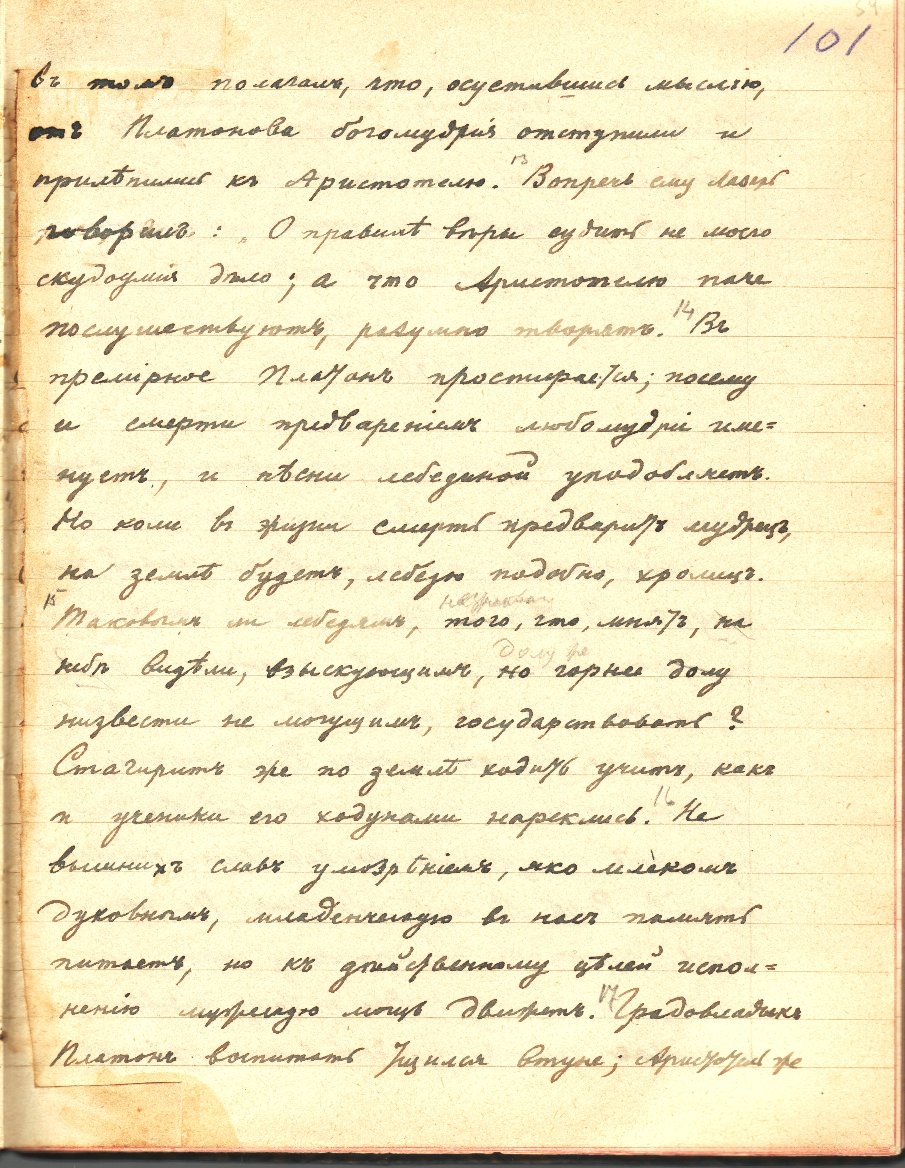 101
въ томъ полагалъ, что, осуетившись мыслію,
отъ Платонова богомудрія отступили и
прилѣпились къ Аристотелю. 13 Вопреч ему
говорилъ: „О правилѣ вѣры судить не моего
скудоумія дѣло; а что Аристотелю паче
послушествуютъ, разумно творятъ. 14 Въ
премірное Платонъ простирается; посему
и смерти предвареніемъ любомудріе име=
нуетъ, и пѣсни лебединой уподобляетъ.
Но коли въ жизни смерть предваритъ мудрецъ,
на землѣ будетъ, лебедю подобно, хромецъ.
15 незримаго
Таковымъ ли лебедямъ, того, что, мнятъ, на
долу же
небѣ видѣли, взыскующимъ, но горнее долу
низвести не могущимъ, государствовать?
Стагиритъ же по землѣ ходить учитъ, какъ
и ученики его ходунами нареклись. 16 Не
вышнихъ славъ умозрѣніемъ, яко млекомъ
духовнымъ, младенческую въ насъ память
питаетъ, но къ дѣйственному цѣлей испол=
ненію мужескую мощь движетъ. 17 Градовладыкъ
Платонъ воспитать тщился втуне; Аристотель же